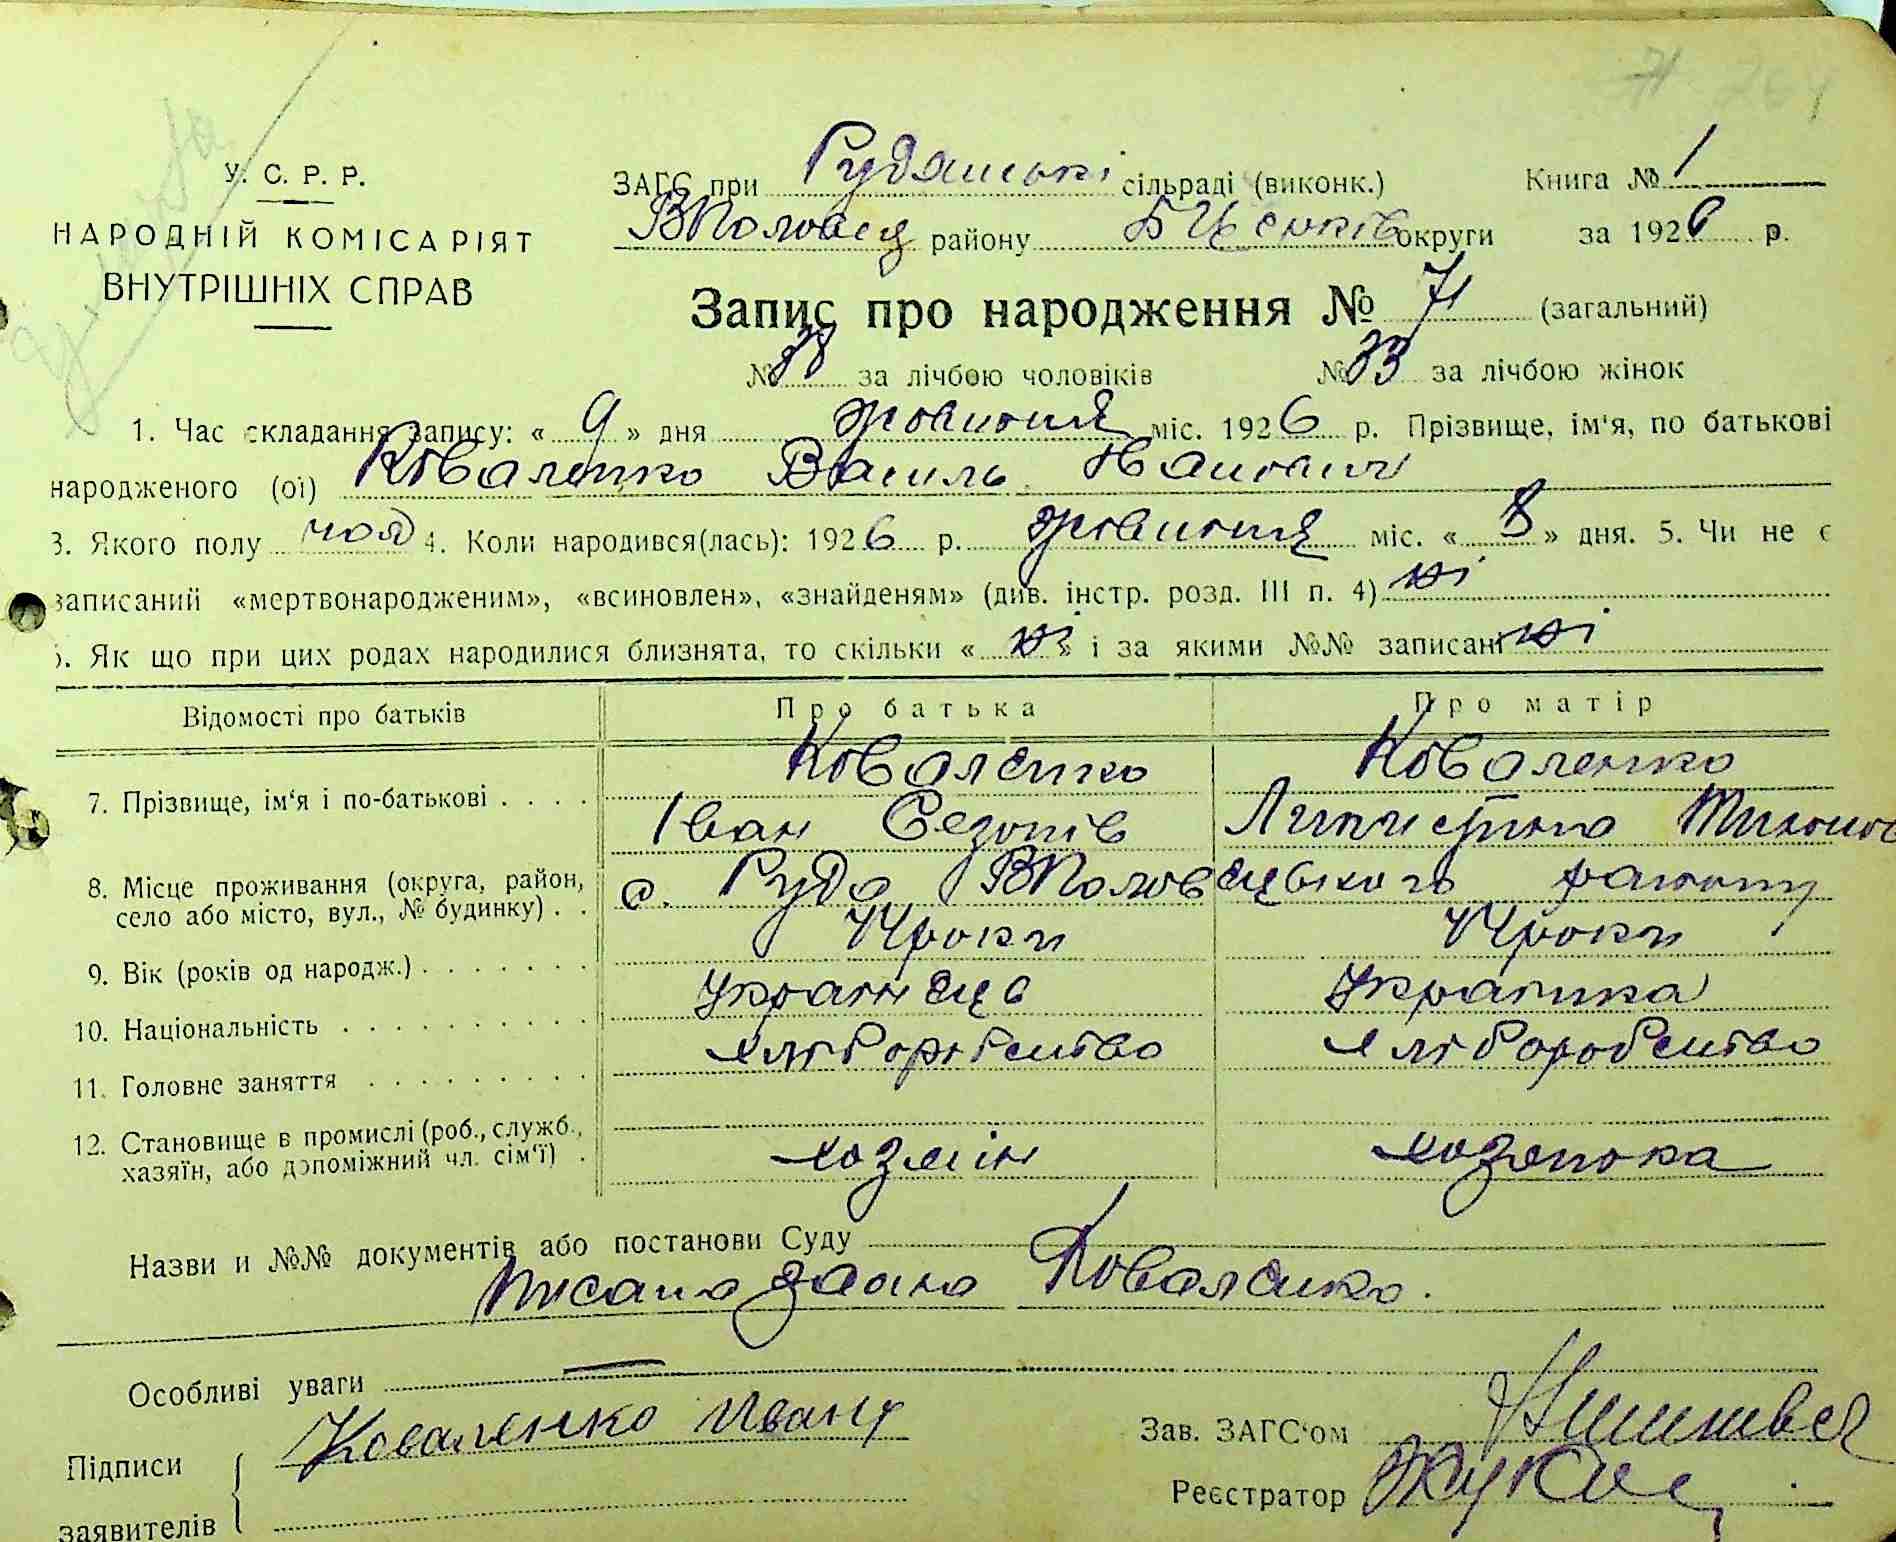 У. С. Р. Р.
НАРОДНІЙ КОМІСАРІЯТ
ВНУТРІШНІХ СПРАВ
ЗАГС при Рудянські сільраді (виконк.) Книга № 1
ВПоловец району БЦ округи за 1926 р.
Запис про народження № 71 (загальний)
№ 38 за лічбою чоловіків № 33 за лічбою жінок
1. Час складання запису: « 9 » дня жовтня міс. 1926 р. Прізвище, ім'я, по батькові
народженого (ої) Коваленко Василь Іванович
3. Якого полу чол 4. Коли народився(лась): 1926 р. жовтня міс. « 8 » дня. 5. Чи не є
записаний «мертвонародженим», «всиновлен», «знайденям» (див. інстр. розд. III п. 4) ні
6. Як що при цих родах народилися близнята, то скільки « ні » і за якими №№ записані ні
Відомості про батьків Про батька Про матір
7. Прізвище, ім'я і по-батькові . . . . Коваленко Коваленко
Іван
8. Місце проживання (округа, район, село або місто, вул., № будинку) . . с. Руда ВПоловецького району
9. Вік (років од народж.) . . . . . . .
10. Національність . . . . . . . . . . українець українка
11. Головне заняття . . . . . . . . . хліборобство хліборобство
12. Становище в промислі (роб., служб., хазяїн, або допоміжний чл. сім'ї) . хозяін хозяйка
Назви и №№ документів або постанови Суду
Коваленко.
Особливі уваги —
Підписи
заявителів
Коваленко Иван
Зав. ЗАГС'ом
Реєстратор